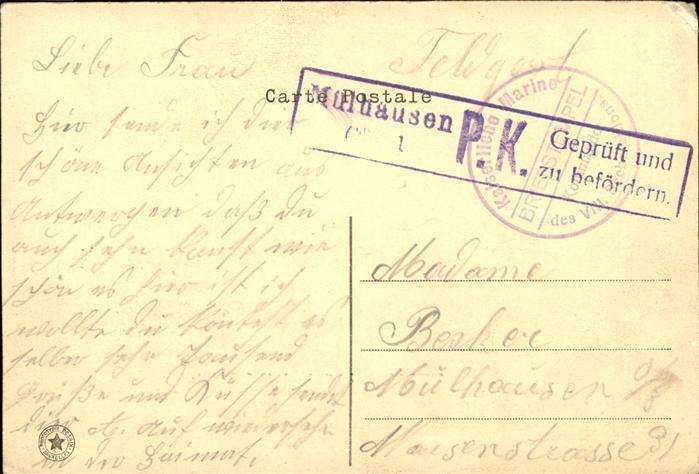 Liebe Frau
Feldpost
Carte Postale
Mülhausen
P.K.
Geprüft und
zu befördern.
Kaiserliche Marine
BRIEFSTEMPEL
des VIII.
Hier sende ich dir
schöne Ansichten aus
Antwerpen daß du
auch sehn kanst wie
schön es hier ist ich
wollte du köntest es
selber sehn Tausend
Grüße und Küsse sendet
dir A. Auf wiedersehn
in der Heimat.
Madame
Becker
Mülhausen